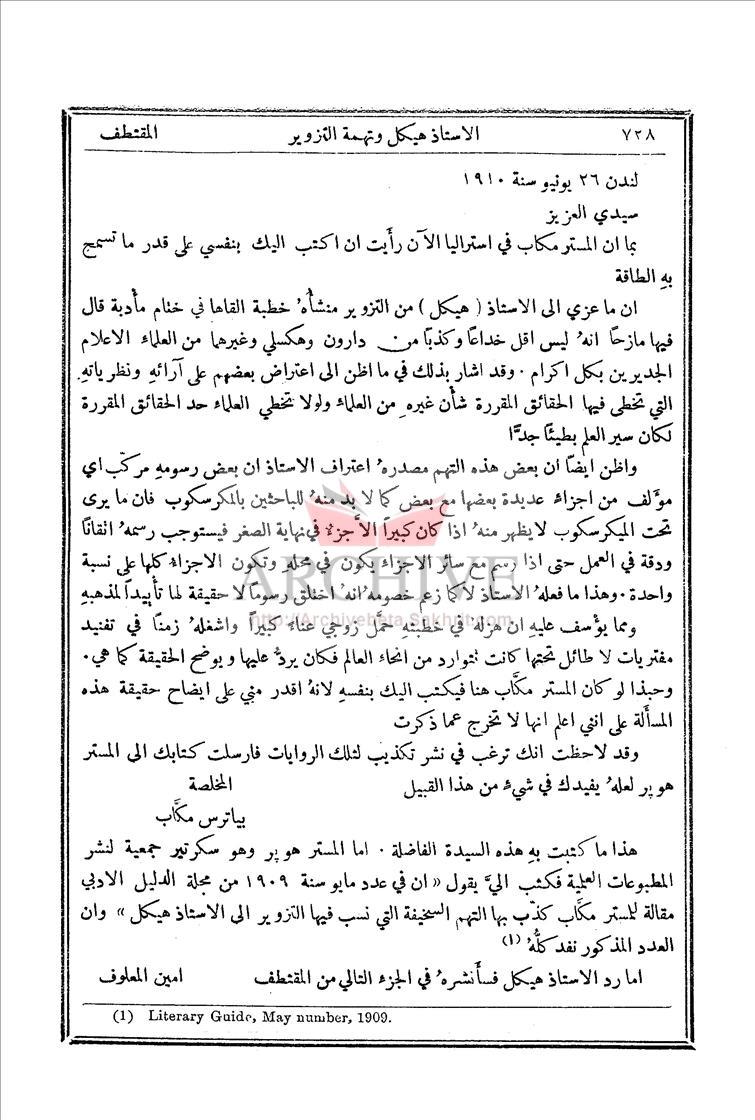 ٧٢٨ الاستاذ هيكل وتهمة التزوير المقتطف
لندن ٢٦ يونيو سنة ١٩١٠
سيدي العزيز
بما ان المستر مكاب في استراليا الآن رأَيت ان اكتب اليك بنفسي على قدر ما تسمح
بهِ الطاقة
ان ما عزي الى الاستاذ ( هيكل ) من التزوير منشأُهُ خطبة القاها في ختام مأدبة قال
فيها مازحاً انهُ ليس اقل خداعاً وكذباً من دارون وهكسلي وغيرهما من العلماء الاعلام
الجديرين بكل اكرام . وقد اشار بذلك في ما اظن الى اعتراض بعضهم على آرائهِ ونظرياتهِ
التي تخطى فيها الحقائق المقررة شأن غيرهِ من العلماء ولولا تخطي العلماء حد الحقائق المقررة
لكان سير العلم بطيئاً جدًّا
واظن ايضاً ان بعض هذه التهم مصدرهُ اعتراف الاستاذ ان بعض رسومهِ مركّب اي
مؤلف من اجزاء عديدة بعضها مع بعض كما لا بد منهُ للباحثين بالمكرسكوب فان ما يرى
تحت الميكرسكوب لا يظهر منهُ اذا كان كبيراً الاَّ جزءٌ في نهاية الصغر فيستوجب رسمهُ اتقاناً
ودقة في العمل حتى اذا رسم مع سائر الاجزاء يكون في محلهِ وتكون الاجزاء كلها على نسبة
واحدة . وهذا ما فعلهُ الاستاذ لا كما زعم خصومهُ انهُ اختلق رسوماً لا حقيقة لها تأييداً لمذهبهِ
ARCHIVE
http://Archivebeta.Sakhrit.com
ومما يؤسف عليهِ ان هزلهُ في خطبتهِ حمَّل زوجي عناءً كبيراً واشغلهُ زمناً في تفنيد
مفتريات لا طائل تحتها كانت تتوارد من انحاء العالم فكان يردُّ عليها ويوضح الحقيقة كما هي .
وحبذا لو كان المستر مكَّاب هنا فيكتب اليك بنفسهِ لانهُ اقدر مني على ايضاح حقيقة هذه
المسأَلة على انني اعلم انها لا تخرج عما ذكرت
وقد لاحظت انك ترغب في نشر تكذيب لتلك الروايات فارسلت كتابك الى المستر
هوپر لعلهُ يفيدك في شيءٍ من هذا القبيل المخلصة
بياترس مكَّاب
هذا ما كتبت بهِ هذه السيدة الفاضلة . اما المستر هوپر وهو سكرتير جمعية لنشر
المطبوعات العلمية فكتب اليَّ يقول « ان في عدد مايو سنة ١٩٠٩ من مجلة الدليل الادبي
مقالة للمستر مكَّاب كذّب بها التهم السخيفة التي نسب فيها التزوير الى الاستاذ هيكل » وان
العدد المذكور نفد كلُّهُ (١)
اما رد الاستاذ هيكل فسأَنشرهُ في الجزء التالي من المقتطف امين المعلوف
(1) Literary Guide, May number, 1909.